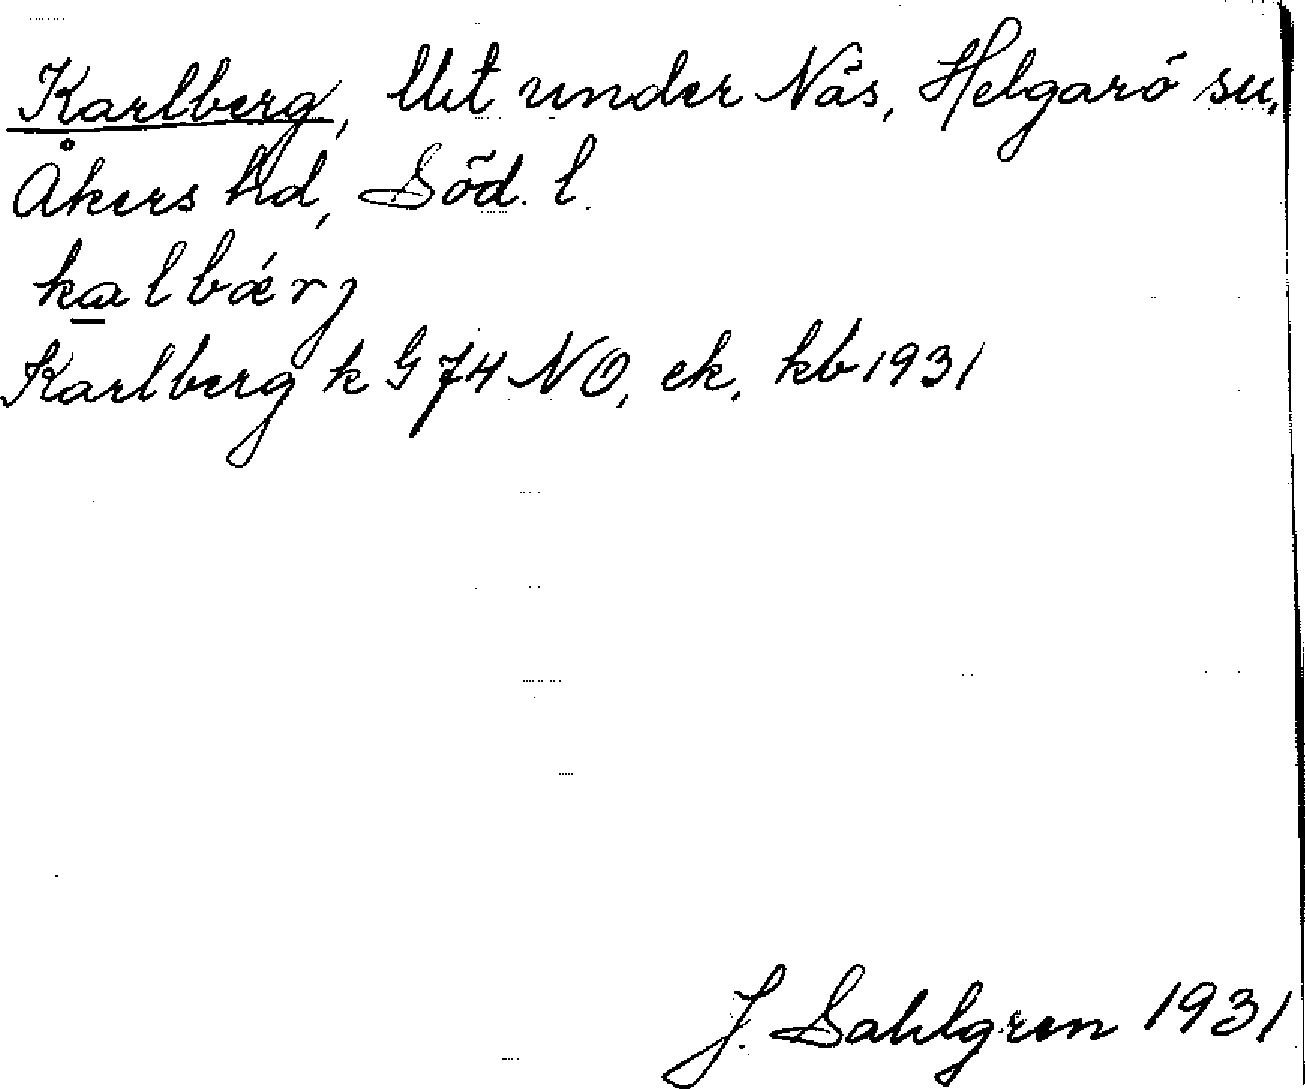 Karlberg, Utt under Näs, Helgarö sn,
Åkers hd, Söd. l.
kalbǽrj
Karlberg k G 74 NO, ek, kb 1931
J. Sahlgren 1931